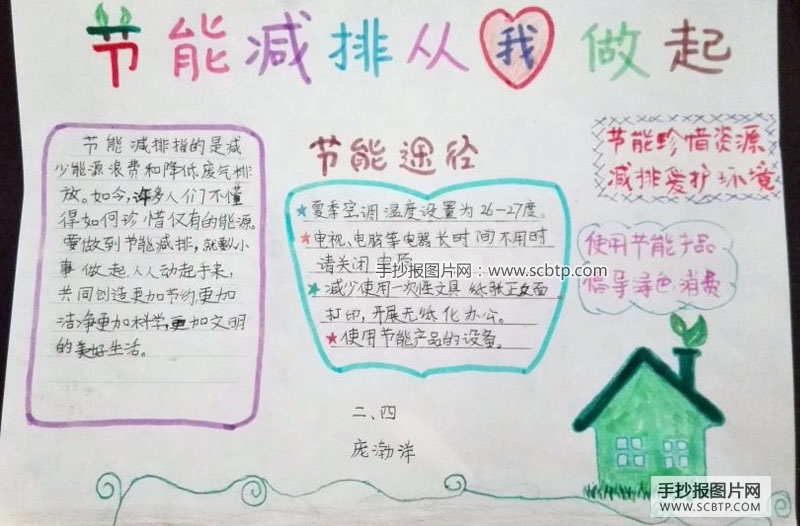 节能减排从我做起
节能减排指的是减
少能源浪费和降低废气排
放。如今,许多人们不懂
得如何珍惜仅有的能源。
要做到节能减排,就从小
事做起人人动起手来,
共同创造更加节约更加
洁净更加科学,更加文明
的美好生活。
节能途径
★夏季空调温度设置为26-27度。
★电视、电脑等电器长时间不用时
请关闭电源
手抄报图片网:www.scbtp.com
★减少使用一次性文具 纸张正反面
打印,开展无纸化办公。
★使用节能产品的设备。
节能珍惜资源
减排爱护环境
使用节能产品
倡导绿色消费
二、四
庞渤洋
手抄报图片网
WWW.SCBTP.COM